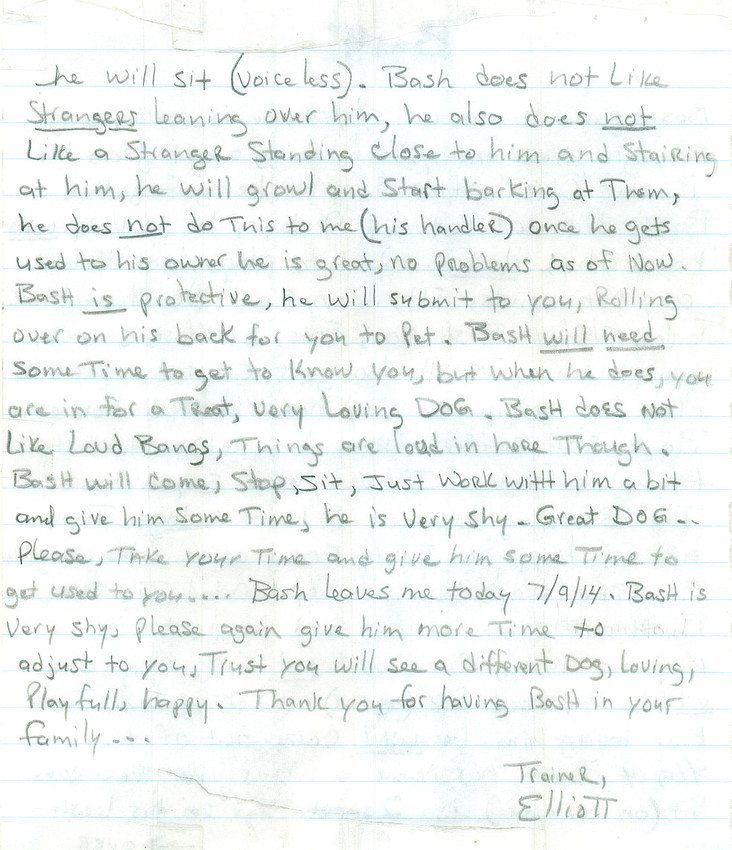 he will sit (voiceless). Bash does not Like
Strangers leaning over him, he also does not
Like a Stranger Standing Close to him and Stairing
at him, he will growl and Start barking at Them,
he does not do This to me (his handler) once he gets
used to his owner he is great, no problems as of Now.
Bash is protective, he will submit to you, Rolling
over on his back for you to Pet. Bash will need
Some Time to get to Know you, but when he does, you
are in for a Treat, very Loving DOG. Bash does Not
Like Loud Bangs, Things are loud in here Though.
Bash will come, Stop, Sit, Just Work with him a bit
and give him Some Time, he is Very shy - Great DOG...
Please, Take your Time and give him some Time to
get used to you.... Bash Leaves me today 7/9/14. Bash is
Very shy, please again give him more Time to
adjust to you, Trust you will see a different Dog, Loving,
Playfull, happy. Thank you for having Bash in your
family...
Trainer,
Elliott